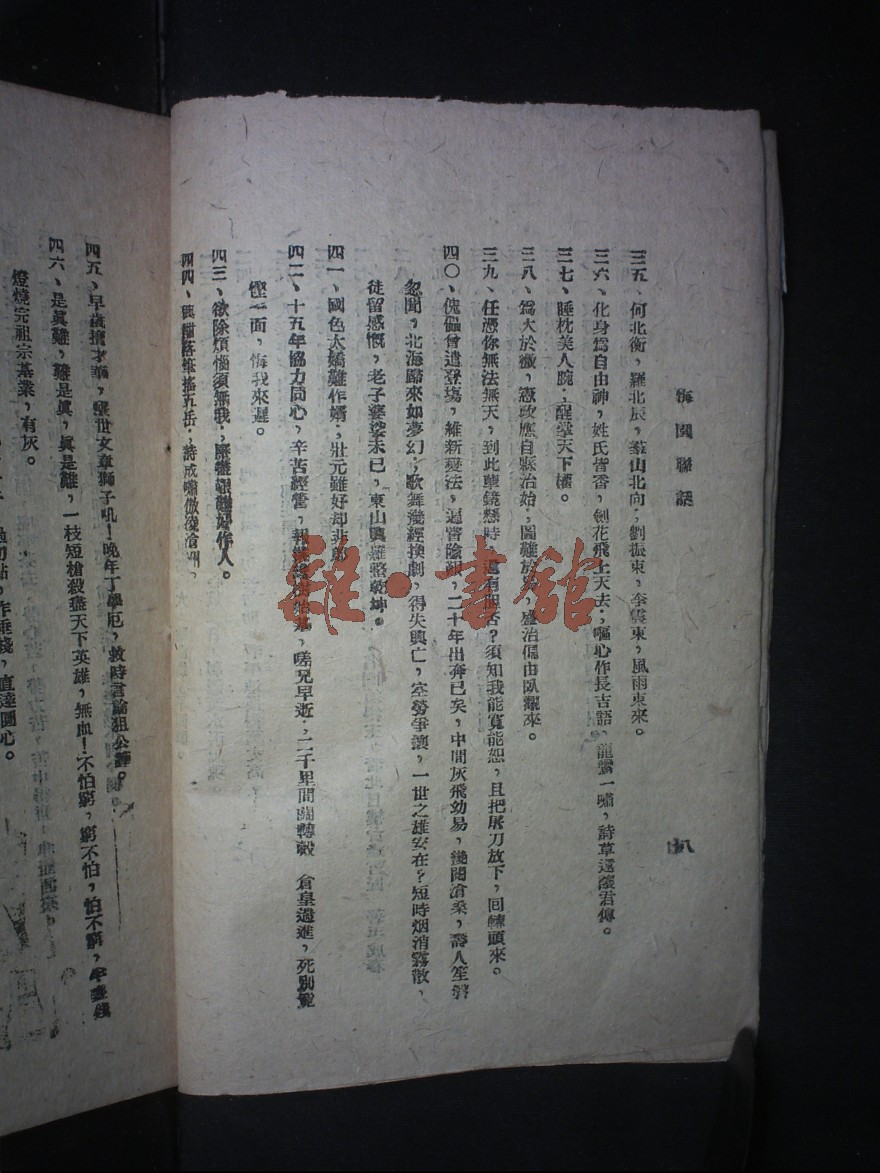 悔園聯語
八
三五、何北衡，羅北辰，羣山北向；劉振東，李雲東，風雨東來。
三六、化身爲自由神，姓氏皆香，劍花飛上天去；嘔心作長吉語，龍鸞一嘯，詩草還隨君傳。
三七、睡枕美人腕；醒掌天下權。
三八、爲大於微，憲政應自縣治始；圖難於易，盛治儒由臥龍來。
三九、任憑你無法無天，到此孽鏡懸時，還有胆否？須知我能寬能恕，且把屠刀放下，回轉頭來。
四〇、傀儡曾遣登場，維新變法，遍嘗險艱，二十年出奔已矣，中間灰飛劫易，幾閱滄桑，壽人笙磬
忽聞，北海歸來如夢幻；歌舞幾經換劇，得失興亡，空勞爭讓，一世之雄安在？短時烟消霧散，
徒留感慨，老子婆娑未已，東山興羅整乾坤。
四一、國色太嬌難作婿；壯元雖好却非郎
四二、十五年協力同心，辛苦經營，報業，嗟兄早逝；二千里間關轉轂 倉皇遄進，死別寬
慳一面，悔我來遲。
四三、欲除煩惱須無我；歷盡艱難好作人。
四四、興酣落筆搖五岳；詩成嘯傲淩滄洲。
四五、早歲擅才華，驚世文章獅子吼！晚年丁學厄，救時言論狙公譁。
四六、是眞難，難是眞，眞是難，一枝短槍殺盡天下英雄，無血！不怕窮，窮不怕，怕不窮，半盞錢
燈燒完祖宗基業，有灰。
直達圓心。
雜·書館